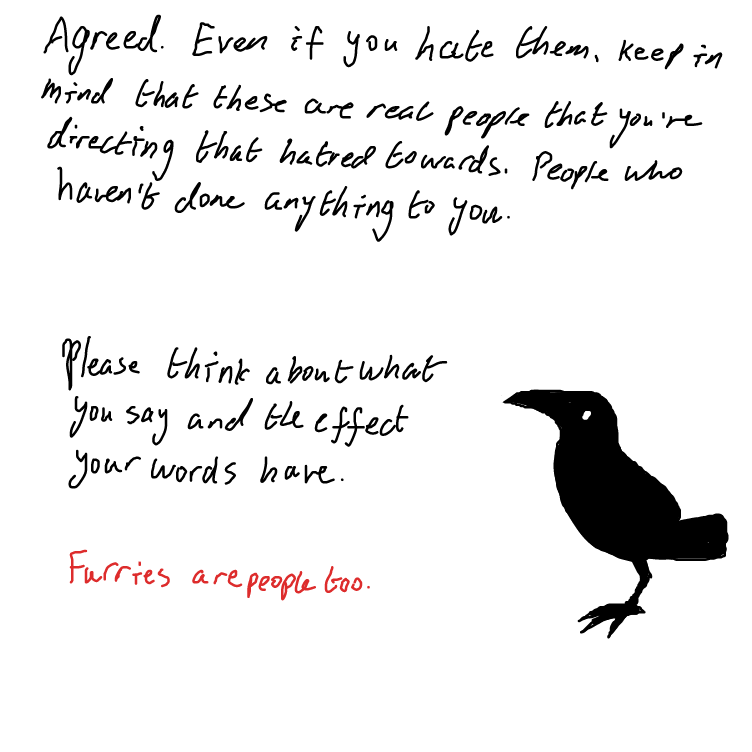 Agreed. Even if you hate them, keep in
mind that these are real people that you're
directing that hatred towards. People who
haven't done anything to you.
Please think about what
you say and the effect
your words have.
Furries are people too.